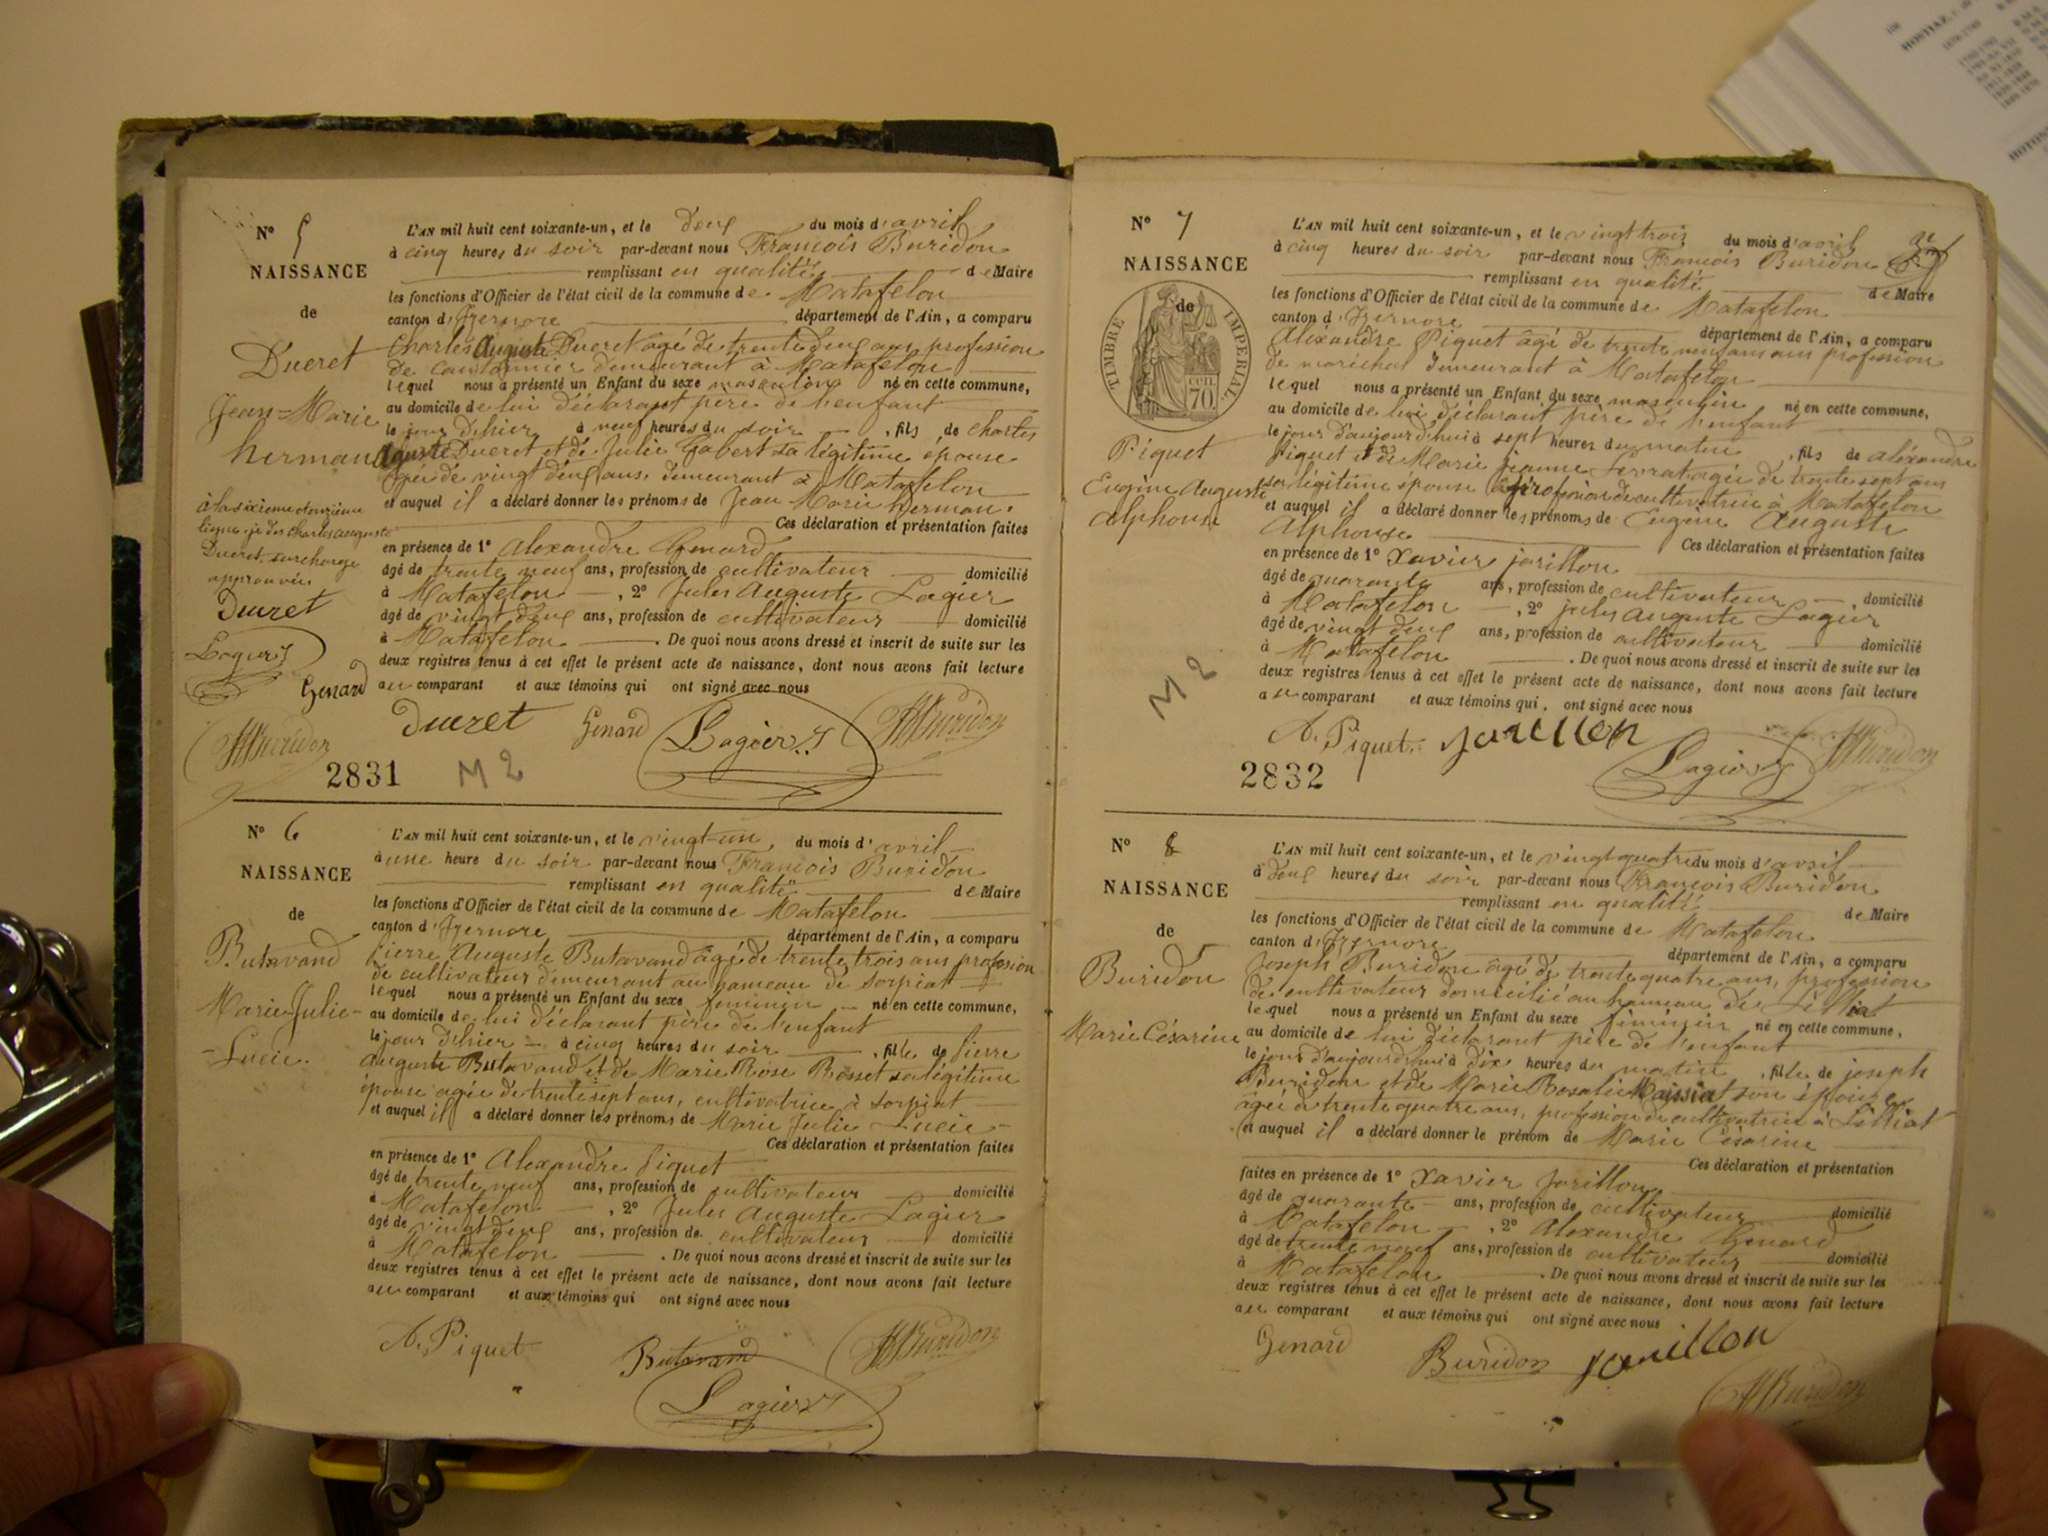 N° 5
NAISSANCE
de
Ducret
Jean-Marie
herman
à la sixième et onzième
ligne de Charles auguste
Ducret, surcharge
approuvée
Ducret
Lagier J
Genard
Buridon
L'AN mil huit cent soixante-un, et le deux du mois d'avril
à cinq heures du soir par-devant nous François Buridon
remplissant en qualité de Maire
les fonctions d'Officier de l'état civil de la commune de Matafelon
canton d'Izernore département de l'Ain, a comparu
Charles Auguste Ducret agé de trente deux ans profession
de cantonnier demeurant à Matafelon
lequel nous a présenté un Enfant du sexe masculin né en cette commune,
au domicile de lui déclarant père de l'enfant
le jour d'hier à neuf heures du soir, fils de charles
Aguste Ducret et de Julie Gabert sa légitime épouse
agée de vingt deux ans, demeurant à Matafelon
et auquel il a déclaré donner les prénoms de Jean Marie herman.
Ces déclaration et présentation faites
en présence de 1° Alexandre Genard
âgé de trente neuf ans, profession de cultivateur domicilié
à Matafelon, 2° Jules Auguste Lagier
âgé de vingt deux ans, profession de cultivateur domicilié
à Matafelon. De quoi nous avons dressé et inscrit de suite sur les
deux registres tenus à cet effet le présent acte de naissance, dont nous avons fait lecture
au comparant et aux témoins qui ont signé avec nous
Ducret Genard Lagier J Buridon
2831 M 2
N° 6
NAISSANCE
de
Butavand
Marie Julie-
-Lucie.
L'AN mil huit cent soixante-un, et le vingt-un du mois d'avril
à une heure du soir par-devant nous François Buridon
remplissant en qualité de Maire
les fonctions d'Officier de l'état civil de la commune de Matafelon
canton d'Izernore département de l'Ain, a comparu
Pierre Auguste Butavand âgé de trente trois ans profession
de cultivateur demeurant au hameau de sorpiat
lequel nous a présenté un Enfant du sexe féminin né en cette commune,
au domicile de lui déclarant père de l'enfant
le jour d'hier à cinq heures du soir, fille de Pierre
auguste Butavand et de Marie Rose Rosset sa légitime
épouse agée de trente sept ans, cultivatrice à sorpiat
et auquel il a déclaré donner les prénoms de Marie Julie Lucie
Ces déclaration et présentation faites
en présence de 1° Alexandre Piquet
âgé de trente neuf ans, profession de cultivateur domicilié
à Matafelon, 2° Jules Auguste Lagier
âgé de vingt deux ans, profession de cultivateur domicilié
à Matafelon. De quoi nous avons dressé et inscrit de suite sur les
deux registres tenus à cet effet le présent acte de naissance, dont nous avons fait lecture
au comparant et aux témoins qui ont signé avec nous
A. Piquet Butavand Buridon
Lagier J
N° 7
NAISSANCE
de
TIMBRE IMPERIAL
70 cen.
Piquet
Eugène Auguste
alphonse
M 2
L'AN mil huit cent soixante-un, et le vingt trois du mois d'avril
à cinq heures du soir par-devant nous François Buridon
remplissant en qualité de Maire
les fonctions d'Officier de l'état civil de la commune de Matafelon
canton d'Izernore département de l'Ain, a comparu
Aléxandre Piquet âgé de trente neuf ans profession
de maréchal demeurant à Matafelon
lequel nous a présenté un Enfant du sexe masculin né en cette commune,
au domicile de lui déclarant père de l'enfant
le jour d'aujourd'hui à sept heures du matin, fils de aléxandre
Piquet et de Marie jeanne agée de trente sept ans
sa légitime épouse profession de cultivatrice à Matafelon
et auquel il a déclaré donner les prénoms de Eugène Auguste
Alphonse Ces déclaration et présentation faites
en présence de 1° Xavier jarillon
âgé de quarante ans, profession de cultivateur domicilié
à Matafelon, 2° jules auguste Lagier
âgé de vingt deux ans, profession de cultivateur domicilié
à Matafelon. De quoi nous avons dressé et inscrit de suite sur les
deux registres tenus à cet effet le présent acte de naissance, dont nous avons fait lecture
au comparant et aux témoins qui ont signé avec nous
A. Piquet jarillon Lagier J Buridon
2832
N° 8
NAISSANCE
de
Buridon
Marie Césarine
L'AN mil huit cent soixante-un, et le vingt quatre du mois d'avril
à deux heures du soir par-devant nous François Buridon
remplissant en qualité de Maire
les fonctions d'Officier de l'état civil de la commune de Matafelon
canton d'Izernore département de l'Ain, a comparu
Joseph Buridon âgé de trente quatre ans, profession
de cultivateur domicilié au hameau de Lilliat
lequel nous a présenté un Enfant du sexe féminin né en cette commune,
au domicile de lui déclarant père de l'enfant
le jour d'aujourd'hui à dix heures du matin, fille de joseph
Buridon et de Marie Rosalie Maissiat son épouse
agée de trente quatre ans, profession de cultivatrice à Lilliat
et auquel il a déclaré donner le prénom de Marie Césarine
Ces déclaration et présentation
faites en présence de 1° Xavier Jarillon
âgé de quarante ans, profession de cultivateur domicilié
à Matafelon, 2° Alexandre Genard
âgé de trente neuf ans, profession de cultivateur domicilié
à Matafelon. De quoi nous avons dressé et inscrit de suite sur les
deux registres tenus à cet effet le présent acte de naissance, dont nous avons fait lecture
au comparant et aux témoins qui ont signé avec nous
Genard Buridon jarillon
Buridon